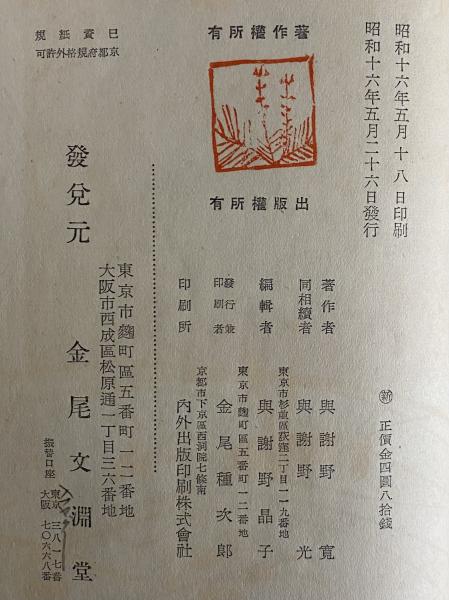 昭和十六年五月十八日印刷
昭和十六年五月二十六日發行
㊟新 正價金四圓八拾錢
著作權所有
出版權所有
著作者 與謝野寬
同相續者 與謝野光
東京市杉並區荻窪二丁目一一九番地
編輯者 與謝野晶子
東京市麴町區五番町一二番地
發行兼印刷者 金尾種次郎
京都市下京區西洞院七條南
印刷所 內外出版印刷株式會社
東京市麴町區五番町一二番地
大阪市西成區松原通一丁目三六番地
發兌元 金尾文淵堂
振替口座 東京 三八一七番
大阪 七〇六六八番
B列貳紙規
京都府規格外許可